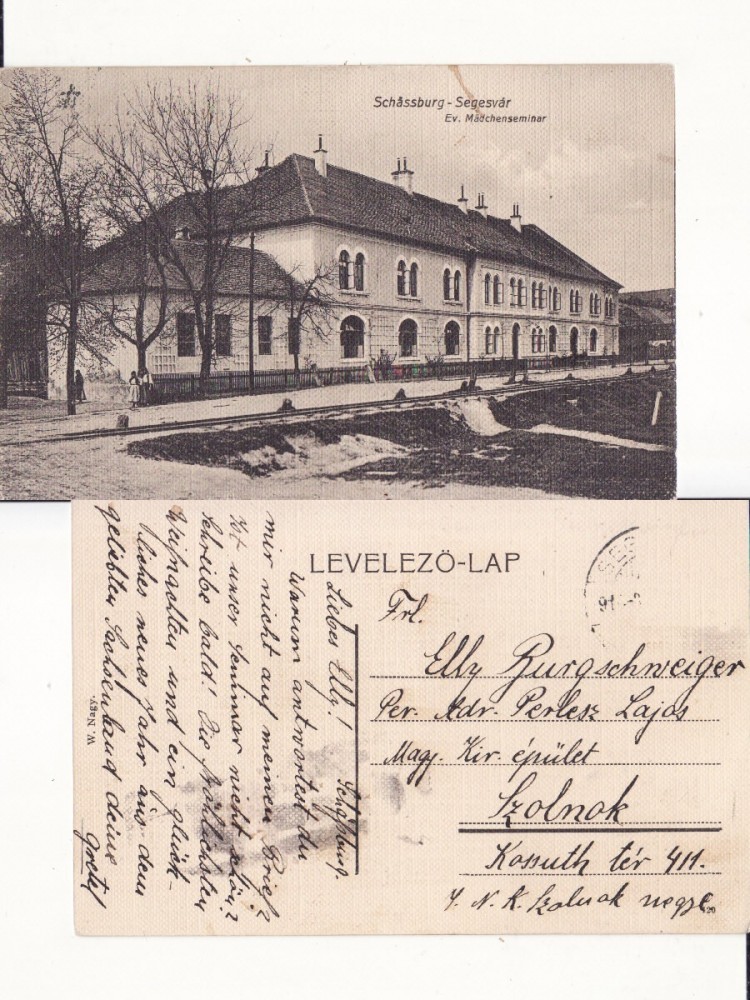 Schässburg - Segesvár
Ev. Mädchenseminar
LEVELEZŐ-LAP
Frl.
Elly Burgschweiger
Per. Adr. Perlesz Lajos
Magy. Kir. épület
Szolnok
Kossuth tér 411.
J. N. K. Szolnok megye
Schäßburg.
Liebes Elly!
Warum antwortest du
mir nicht auf meinen Brief?
Ist unser Seminar nicht schön?
Schreibe bald! Die fröhlichsten
Weihnachten und ein glück-
liches neues Jahr aus dem
geliebten Sachsenland deine
Gretel
W. Nagy.